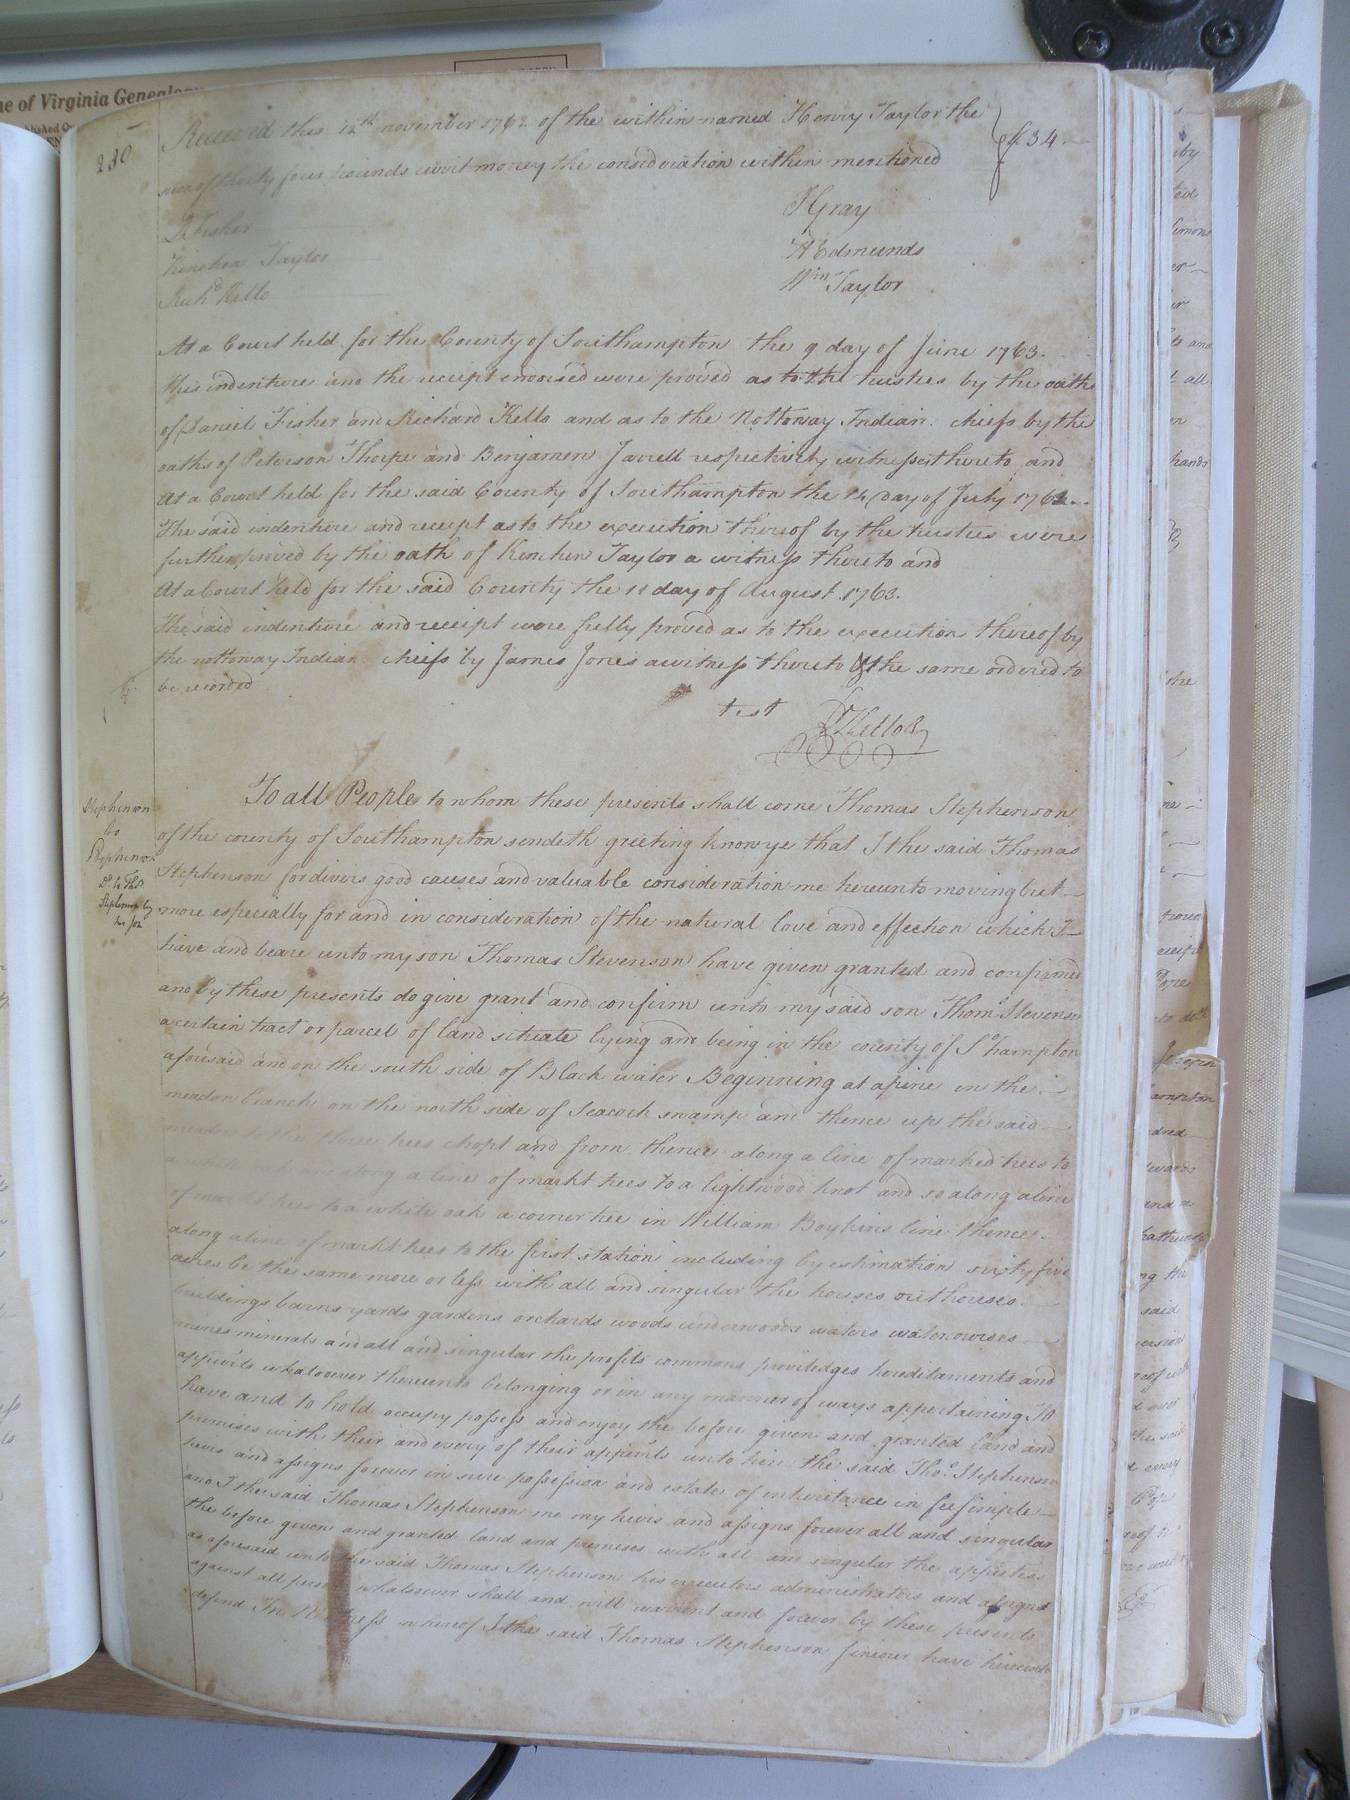 ne of Virginia Genealogy
Received this 12th november 1762 of the within named Henry Taylor the
sum of thirty four pounds curit money the consideration within mentioned
£34
D Fisher
Kinchen Taylor
Richd Kello
J Gray
H Edmunds
Wm Taylor
At a Court held for the County of Southampton the 9 day of June 1763.
this indenture and the receipt endorsed were proved as to the trustees by the oaths
of Daniel Fisher and Richard Kello and as to the Nottoway Indian cheifs by the
oaths of Peterson Thorpe and Benjamen Jarrell respectively witnesses thereto and
At a Court held for the said County of Southampton the 14 day of July 1763
The said indenture and receipt as to the execution thereof by the trustees were
further proved by the oath of Kinchen Taylor a witness thereto and
At a Court held for the said County the 11 day of August 1763.
The said indenture and receipt were fully proved as to the execution thereof by
the nottoway Indian cheifs by James Jones a witness thereto & the same ordered to
be recorded
test
R Kello
Stephenson
to
Stephenson
To all People to whom these presents shall come Thomas Stephenson
of the county of Southampton sendeth greeting know ye that I the said Thomas
Stephenson for divers good causes and valuable consideration me hereunto moving but
more especially for and in consideration of the natural love and effection which I
have and beare unto my son Thomas Stevenson have given granted and confirmed
and by these presents do give grant and confirm unto my said son Thoms Stevenson
a certain tract or parcel of land situate lying and being in the county of So hampton
aforesaid and on the south side of Black water Beginning at a pine in the
meadon branch on the north side of Seacock swamp and thence up the said
the three trees chopt and from thence along a line of marked trees to
a white oak and along a line of markt trees to a lightwood knot and so along a line
of markt trees to a white oak a corner tree in William Boykins line thence
along a line of markt trees to the first station including by estimation sixty five
acres be the same more or less with all and singular the houses outhouses
buildings barns yards gardens orchards woods underwoods waters watercourses
mines minerals and all and singular the profits commons priviledges hereditaments and
appurts whatsoever thereunto belonging or in any manner of ways appertaining To
have and to hold occupy possess and enjoy the before given and granted land and
premises with their and every of their appurts unto him the said Thos Stephenson
heirs and assigns forever in sure possession and estate of inheritance in feesimple
and I the said Thomas Stephenson me my heirs and assigns forever all and singular
the before given and granted land and premises with all and singular the appurts
as aforesaid unto the said Thomas Stephenson his executors administrators and assigns
against all persons whatsoever shall and will warrent and forever by these presents
defend In Witness whereof I the said Thomas Stephenson seniour have hereunto